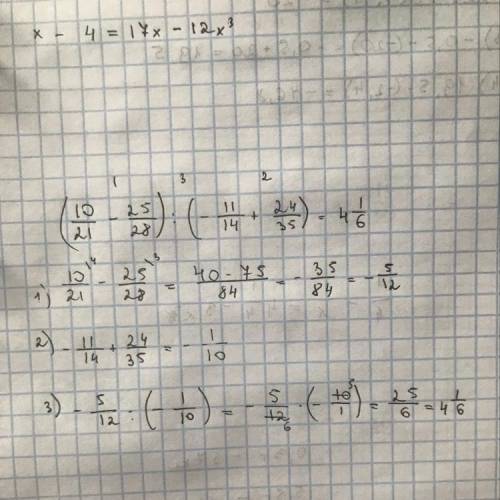 x - 4 = 17x - 12x³
(10/21 - 25/28) : (- 11/14 + 24/35) = 4 1/6
1) 10/21 - 25/28 = 40-75/84 = - 35/84 = - 5/12
2) - 11/14 + 24/35 = - 1/10
3) - 5/12 : (- 1/10) = - 5/12 · (- 10/1) = 25/6 = 4 1/6